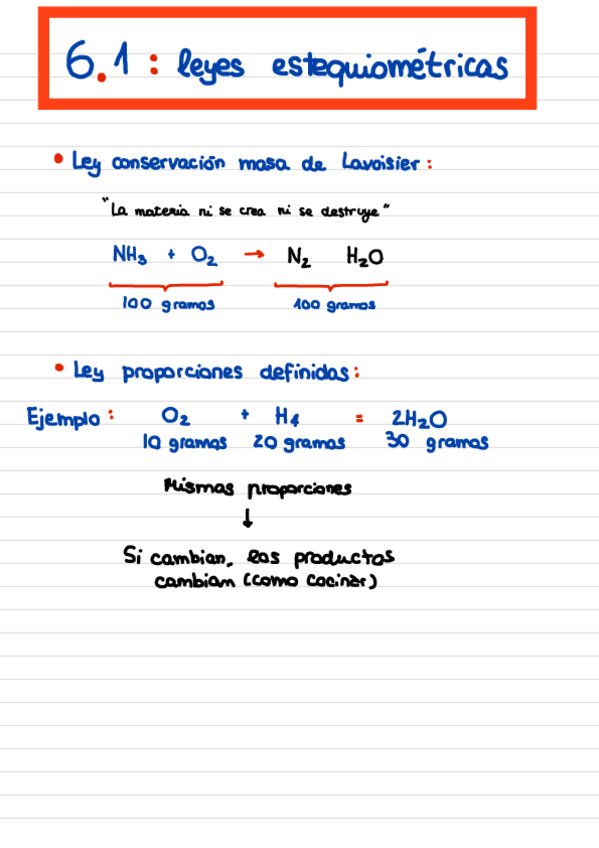 6.1 : leyes estequiométricas
• Ley conservación masa de Lavoisier :
"La materia ni se crea ni se destruye"
NH₃ + O₂ → N₂ H₂O
100 gramos 100 gramos
• Ley proporciones definidas :
Ejemplo : O₂ + H₄ = 2H₂O
10 gramos 20 gramos 30 gramos
Mismas proporciones
↓
Si cambian, los productos
cambian (como cocinar)